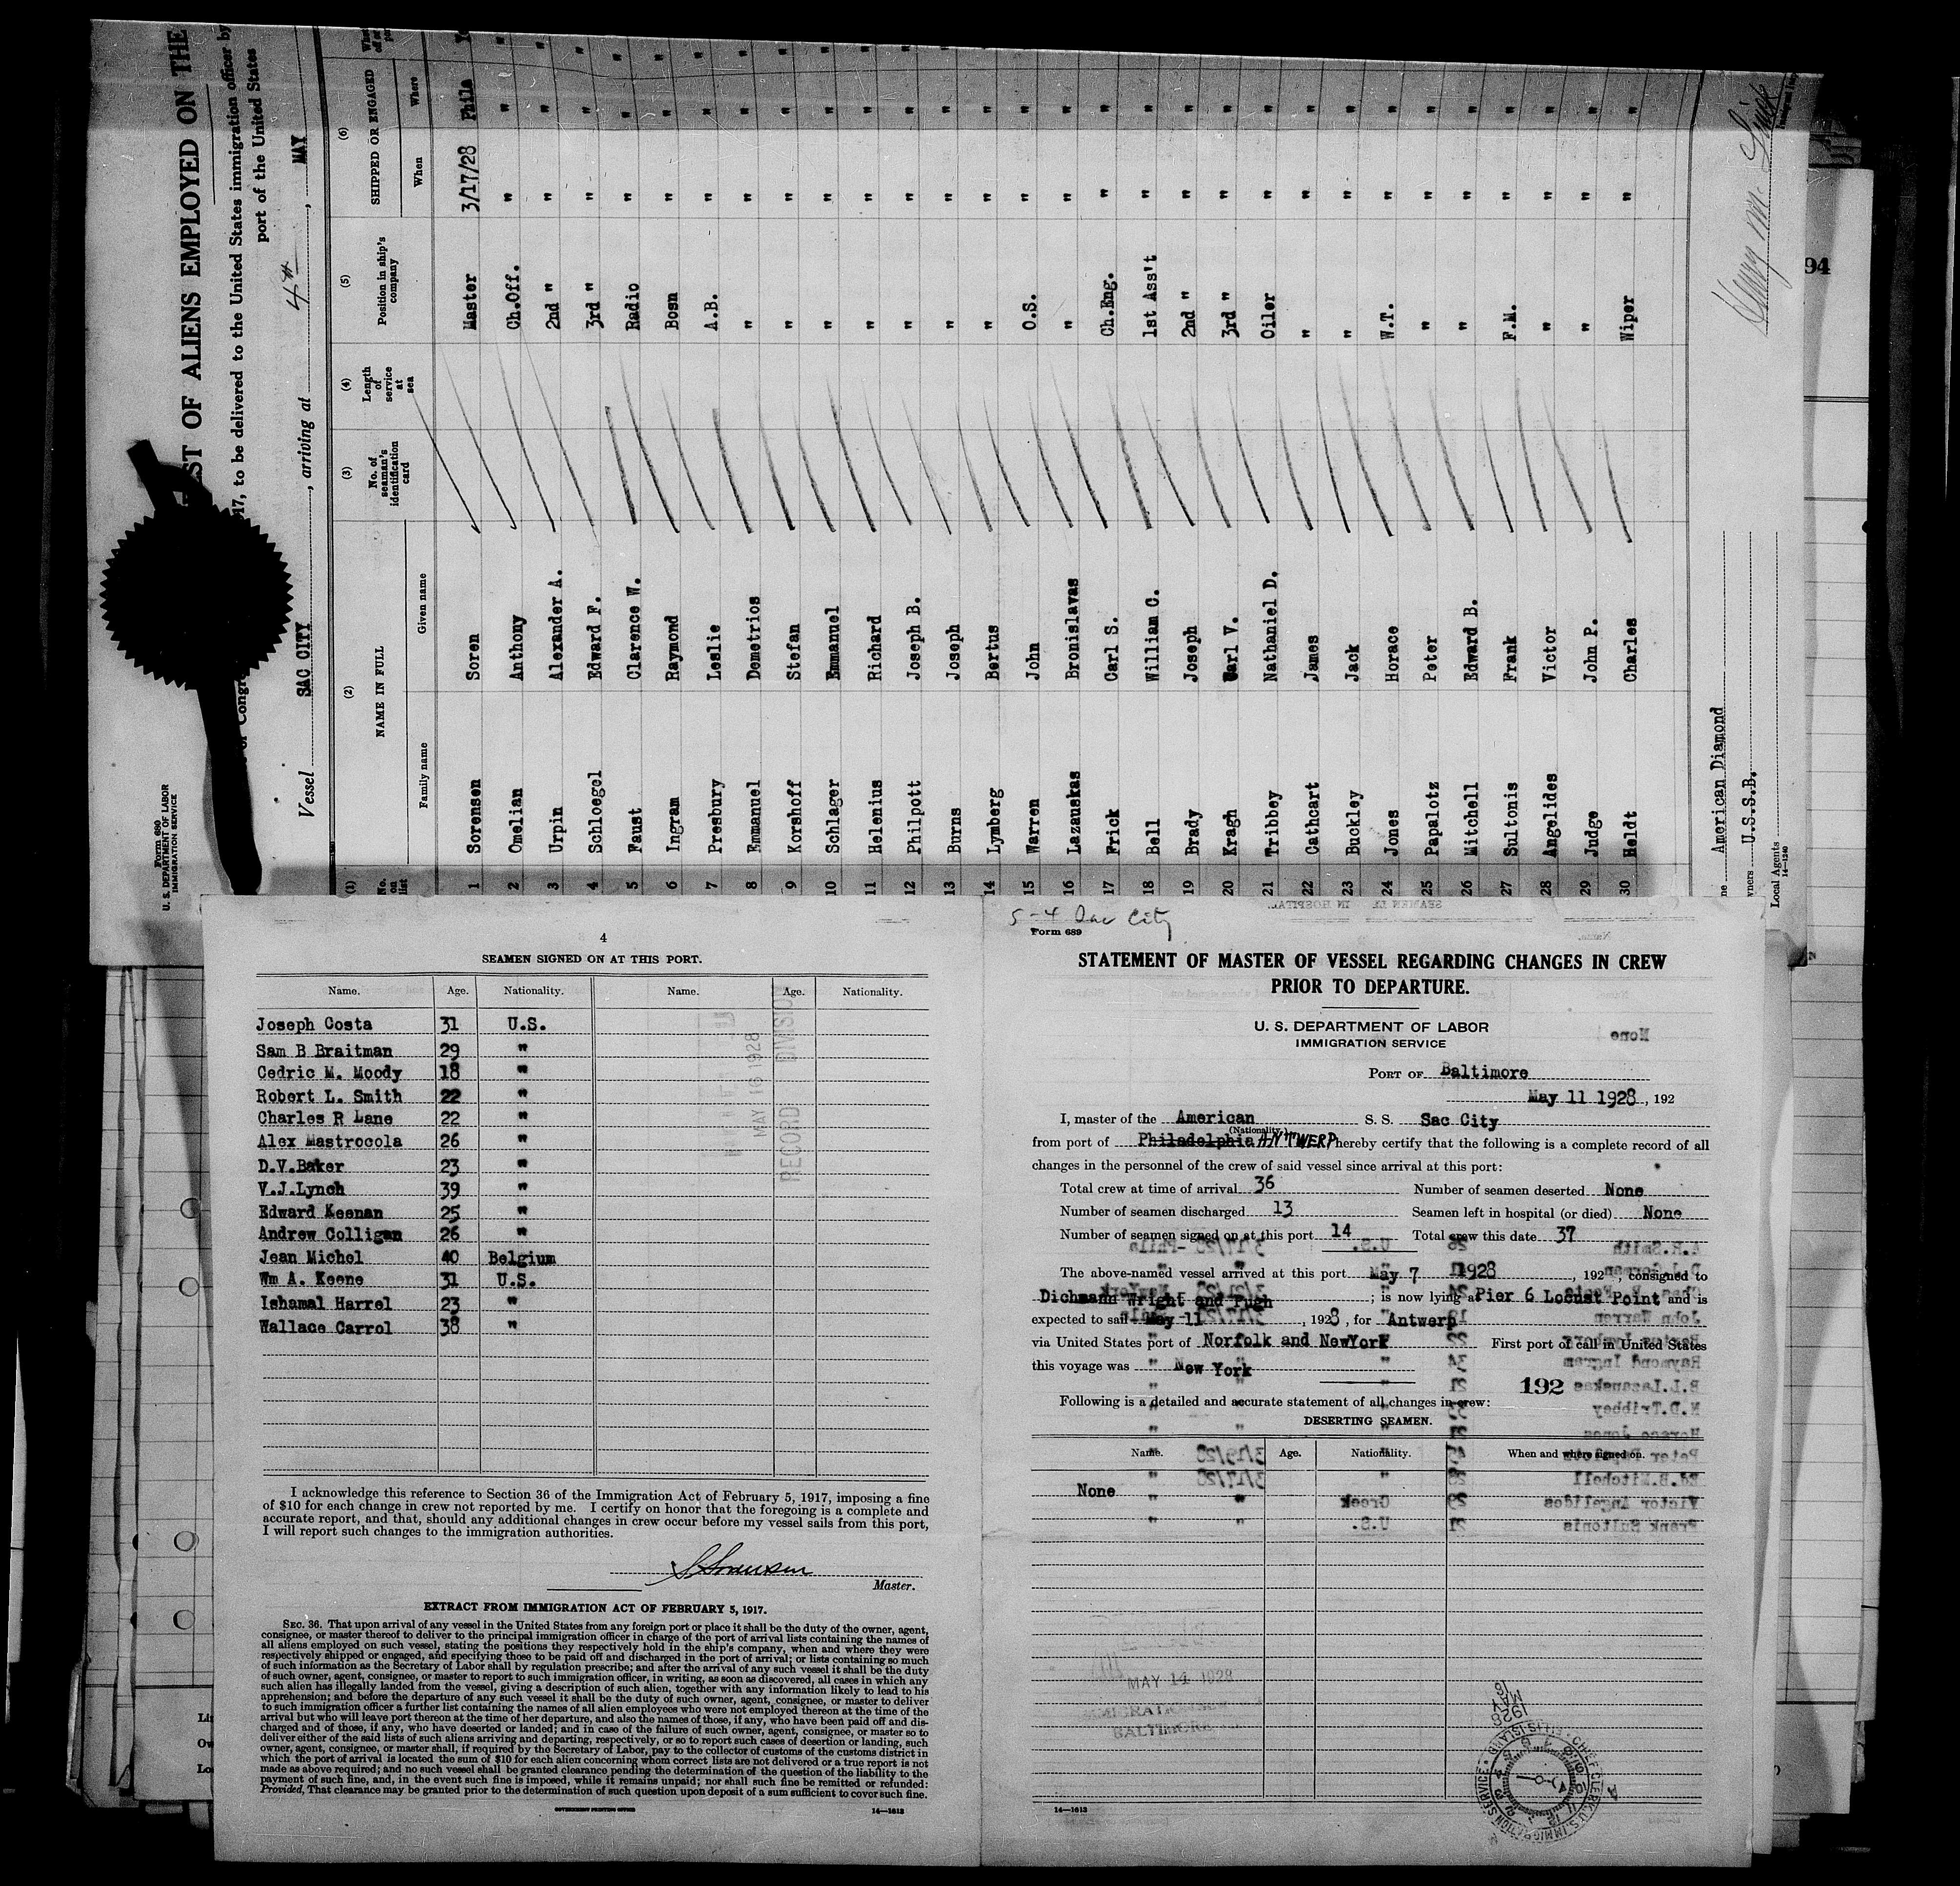 Form 680
U. S. DEPARTMENT OF LABOR
IMMIGRATION SERVICE
ST OF ALIENS EMPLOYED ON THE
17, to be delivered to the United States immigration officer by
port of the United States
of Congre
Vessel SAC CITY, arriving at 4th, MAY
(1) (2) (3) (4) (5) (6)
No. on list NAME IN FULL No. of seaman's identification card Length of service at sea Position in ship's company SHIPPED OR ENGAGED
Family name Given name When Where
1 Sorensen Soren Master 3/17/28 Phila
2 Omelian Anthony Ch.Off. " "
3 Urpin Alexander A. 2nd " " "
4 Schloegel Edward F. 3rd " " "
5 Faust Clarence W. Radio " "
6 Ingram Raymond Bosn " "
7 Presbury Leslie A.B. " "
8 Emmanuel Demetrios " " "
9 Korshoff Stefan " " "
10 Schlager Emmanuel " " "
11 Helenius Richard " " "
12 Philpott Joseph B. " " "
13 Burns Joseph " " "
14 Lymberg Bertus " " "
15 Warren John O.S. " "
16 Lazauskas Bronislavas " " "
17 Frick Carl S. Ch.Eng. " "
18 Bell William C. 1st Ass't " "
19 Brady Joseph 2nd " " "
20 Kragh Carl V. 3rd " " "
21 Tribbey Nathaniel D. Oiler " "
22 Cathcart James " " "
23 Buckley Jack " " "
24 Jones Horace W.T. " "
25 Papalotz Peter " " "
26 Mitchell Edward B. " " "
27 Sultonis Frank F.M. " "
28 Angelides Victor " " "
29 Judge John P. " " "
30 Heldt Charles Wiper " "
ne American Diamond
wners U.S.S.B.
Local Agents
14—1240
94
4
SEAMEN SIGNED ON AT THIS PORT.
Name. Age. Nationality. Name. Age. Nationality.
Joseph Costa 31 U.S.
Sam B Braitman 29 "
Cedric M. Moody 18 "
Robert L. Smith 22 "
Charles R Lane 22 "
Alex Mastrocola 26 "
D.V.Baker 23 "
V.J.Lynch 39 "
Edward Keenan 25 "
Andrew Colligan 26 "
Jean Michel 40 Belgium
Wm A. Keene 31 U.S.
Ishamal Harrel 23 "
Wallace Carrol 38 "
MAY 16 1928
RECORD DIVISION
I acknowledge this reference to Section 36 of the Immigration Act of February 5, 1917, imposing a fine
of $10 for each change in crew not reported by me. I certify on honor that the foregoing is a complete and
accurate report, and that, should any additional changes in crew occur before my vessel sails from this port,
I will report such changes to the immigration authorities.
S Sorensen
Master.
EXTRACT FROM IMMIGRATION ACT OF FEBRUARY 5, 1917.
SEC. 36. That upon arrival of any vessel in the United States from any foreign port or place it shall be the duty of the owner, agent,
consignee, or master thereof to deliver to the principal immigration officer in charge of the port of arrival lists containing the names of
all aliens employed on such vessel, stating the positions they respectively hold in the ship's company, when and where they were
respectively shipped or engaged, and specifying those to be paid off and discharged in the port of arrival; or lists containing so much
of such information as the Secretary of Labor shall by regulation prescribe; and after the arrival of any such vessel it shall be the duty
of such owner, agent, consignee, or master to report to such immigration officer, in writing, as soon as discovered, all cases in which any
such alien has illegally landed from the vessel, giving a description of such alien, together with any information likely to lead to his
apprehension; and before the departure of any such vessel it shall be the duty of such owner, agent, consignee, or master to deliver
to such immigration officer a further list containing the names of all alien employees who were not employed thereon at the time of the
arrival but who will leave port thereon at the time of her departure, and also the names of those, if any, who have been paid off and dis-
charged and of those, if any, who have deserted or landed; and in case of the failure of such owner, agent, consignee, or master so to
deliver either of the said lists of such aliens arriving and departing, respectively, or so to report such cases of desertion or landing, such
owner, agent, consignee, or master shall, if required by the Secretary of Labor, pay to the collector of customs of the customs district in
which the port of arrival is located the sum of $10 for each alien concerning whom correct lists are not delivered or a true report is not
made as above required; and no such vessel shall be granted clearance pending the determination of the question of the liability to the
payment of such fine, and, in the event such fine is imposed, while it remains unpaid; nor shall such fine be remitted or refunded:
Provided, That clearance may be granted prior to the determination of such question upon deposit of a sum sufficient to cover such fine.
GOVERNMENT PRINTING OFFICE 14—1613
5-4 Sac City
Form 689
STATEMENT OF MASTER OF VESSEL REGARDING CHANGES IN CREW
PRIOR TO DEPARTURE.
U. S. DEPARTMENT OF LABOR
IMMIGRATION SERVICE
PORT OF Baltimore
May 11 1928, 192
I, master of the American S. S. Sac City
(Nationality.)
from port of Philadelphia ANTWERP hereby certify that the following is a complete record of all
changes in the personnel of the crew of said vessel since arrival at this port:
Total crew at time of arrival 36 Number of seamen deserted None
Number of seamen discharged 13 Seamen left in hospital (or died) None
Number of seamen signed on at this port 14 Total crew this date 37
The above-named vessel arrived at this port May 7 1928, 192 , consigned to
Dichmann Wright and Pugh ; is now lying at Pier 6 Locust Point and is
expected to sail May 11, 1928, for Antwerp
via United States port of Norfolk and NewYork First port of call in United States
this voyage was New York
192
Following is a detailed and accurate statement of all changes in crew:
DESERTING SEAMEN.
Name. Age. Nationality. When and where signed on.
None
MAY 14 1928
IMMIGRATION SE
BALTIMORE
CHIEF CLERK, U.S. IMMIGRATION SERVICE · ELLIS ISLAND
14—1613